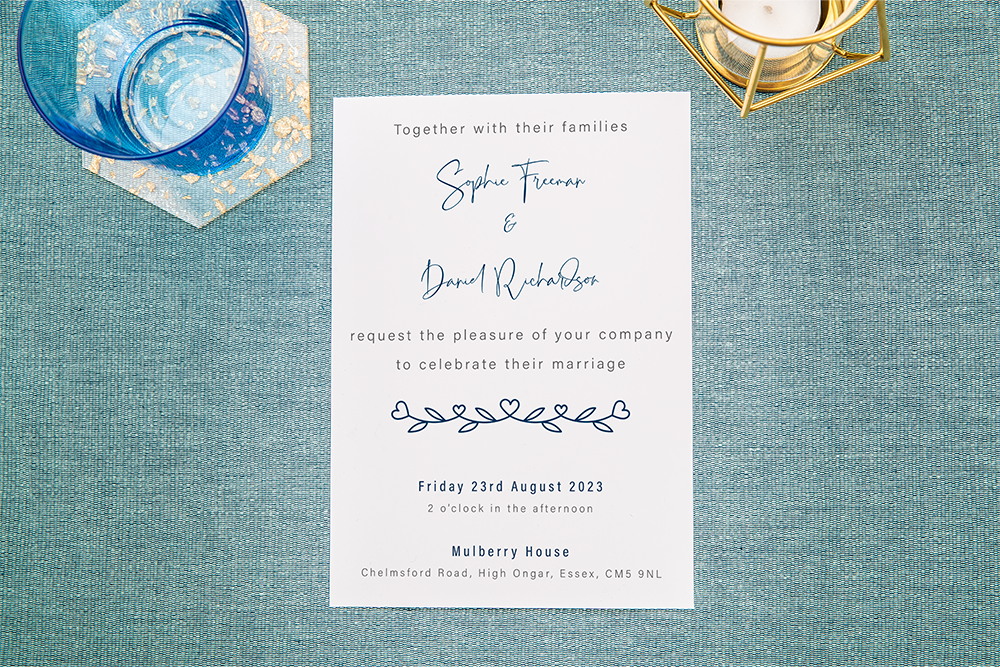 Together with their families
Sophie Freeman
&
Daniel Richardson
request the pleasure of your company
to celebrate their marriage
Friday 23rd August 2023
2 o'clock in the afternoon
Mulberry House
Chelmsford Road, High Ongar, Essex, CM5 9NL